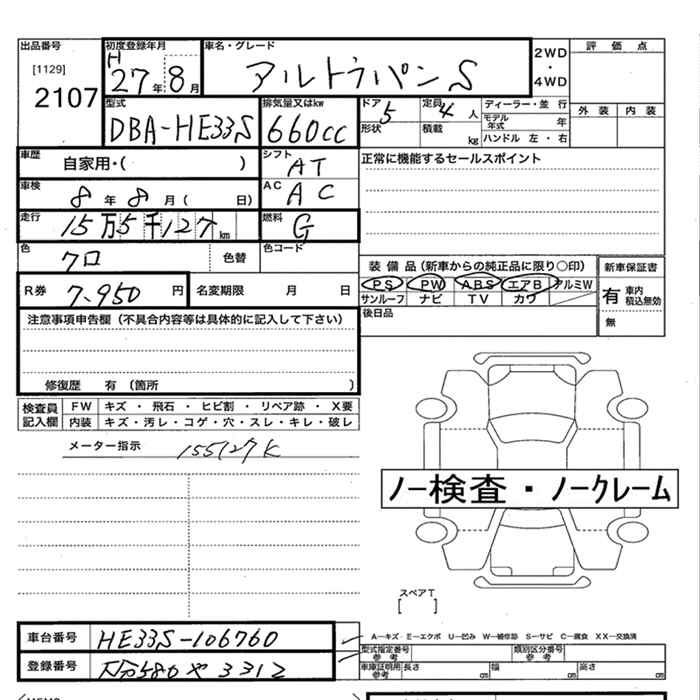 出品番号
[1129]
2107
初度登録年月
H 27年 8月
車名・グレード
アルトラパンS
2WD・4WD
評価点
外装 内装
型式
DBA-HE33S
排気量又はkw
660cc
ドア 5
定員 4人
ディーラー・並行
形状
積載 kg
モデル年式 年
ハンドル 左・右
車歴
自家用・( )
シフト
AT
正常に機能するセールスポイント
車検
8年 8月( 日)
AC
AC
走行
15万5千127km
燃料
G
色
クロ
色替
色コード
R券 7,950円
名変期限 月 日
装備品(新車からの純正品に限り○印)
PS PW ABS エアB アルミW
サンルーフ ナビ TV カワ
新車保証書
有 車内積込無効
無
後日品
注意事項申告欄(不具合内容等は具体的に記入して下さい)
修復歴 有 (箇所 )
検査員記入欄
FW キズ・飛石・ヒビ割・リペア跡・X要
内装 キズ・汚レ・コゲ・穴・スレ・キレ・破レ
メーター指示 155127K
ノー検査・ノークレーム
スペアT
[ ]
車台番号 HE33S-106760
登録番号 580 や 3312
A―キズ E―エクボ U―凹み W―補修跡 S―サビ C―腐食 XX―交換済
型式指定番号参考
類別区分番号参考
車庫証明用参考 長さ cm 幅 cm 高さ cm